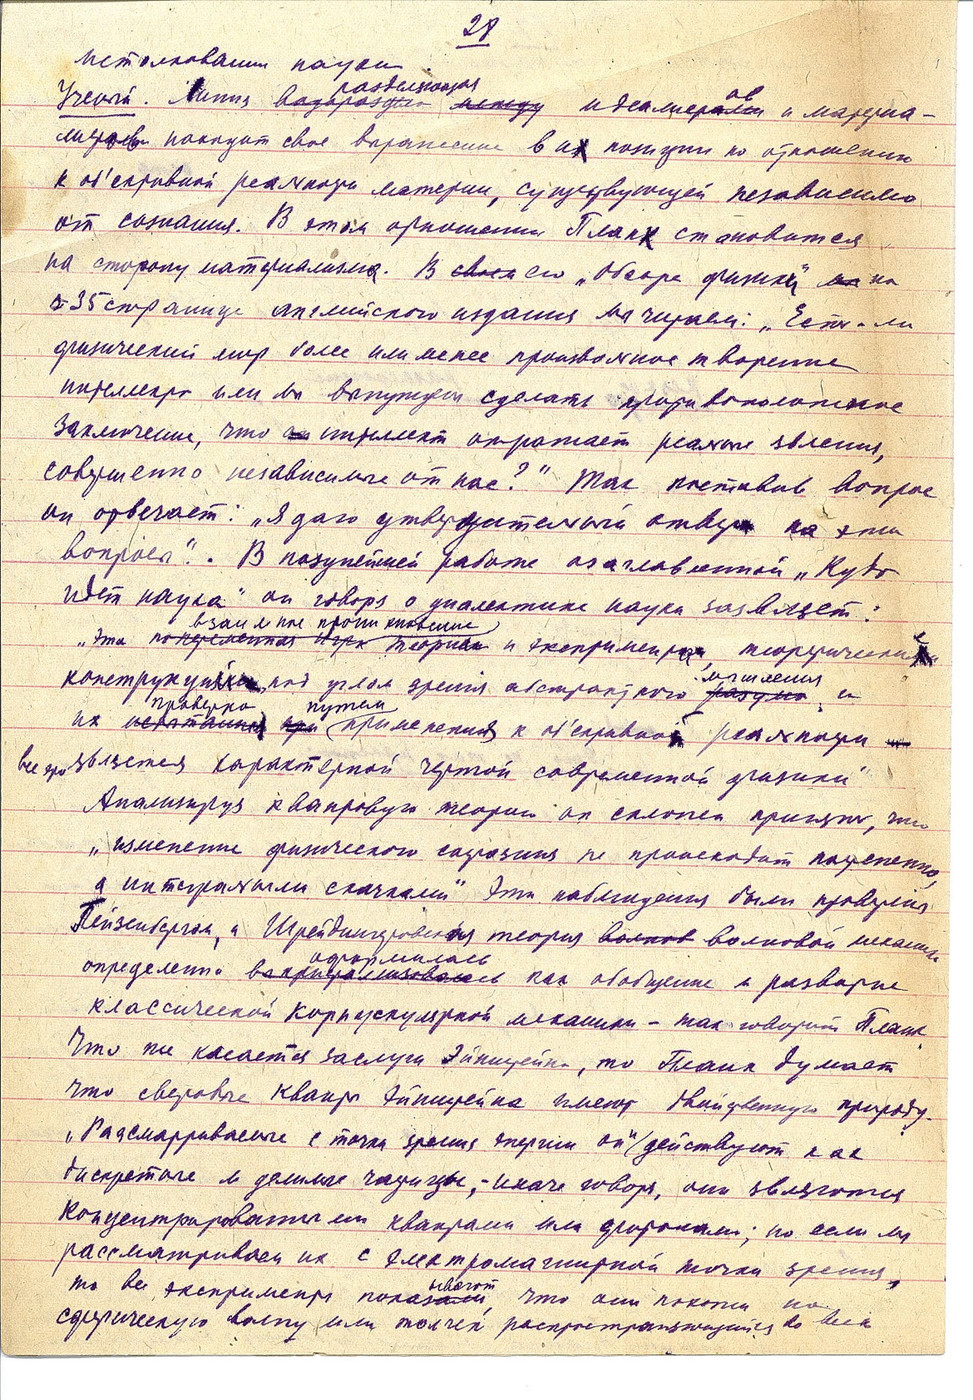 28
истолковании науки
разделяющая ов
Ученый. Линия водораздела между идеалистами и материа-
листов находит свое выражение в их позиции по отношению
к об'ективной реальности материи, существующей независимо
от сознания. В этом отношении Планк становится
на сторону материализма. В своем его „Обзоре физики" на
235 странице английского издания мы читаем: „Есть-ли
физический мир более или менее произвольное творение
интеллекта или мы вынуждены сделать противоположное
заключение, что интеллект отражает реальные явления,
совершенно независимые от нас?" Так поставив вопрос
он отвечает: „Я даю утвердительный ответ на эти
вопросы". В позднейшей работе озаглавленной „Куда
идет наука" он говоря о диалектике науки заявляет:
взаимное проникновение
„Эта попеременная игра теории и эксперимента, теоретических
мышления
конструкций, под углом зрения абстрактного разума, и
проверка путем
их испытания при применения к об'ективной реальности
все это является характерной чертой современной физики"
Анализируя квантовую теорию он склонен принять, что
„изменение физического состояния не происходит постепенно,
а интегральными скачками" Эти наблюдения были проверены
Гейзенбергом, а Шрейдингеровская теория волнов волновой механики
оформилась
определенно выкристализовалась как обобщение и развитие
классической корпускулярной механики - так говорит Планк
Что же касается заслуги Эйнштейна, то Планк думает
что световые кванты Эйнштейна имеют двойственную природу.
„Рассматриваемые с точки зрения энергии они" действуют как
дискретные и делимые частицы, - иначе говоря, они являются
концентрированными квантами или фотонами; но если мы
рассматриваем их с электромагнитной точки зрения,
ывают
то все эксперименты показали, что они похожи на
сферическую волну или толчек распространяющийся во всех